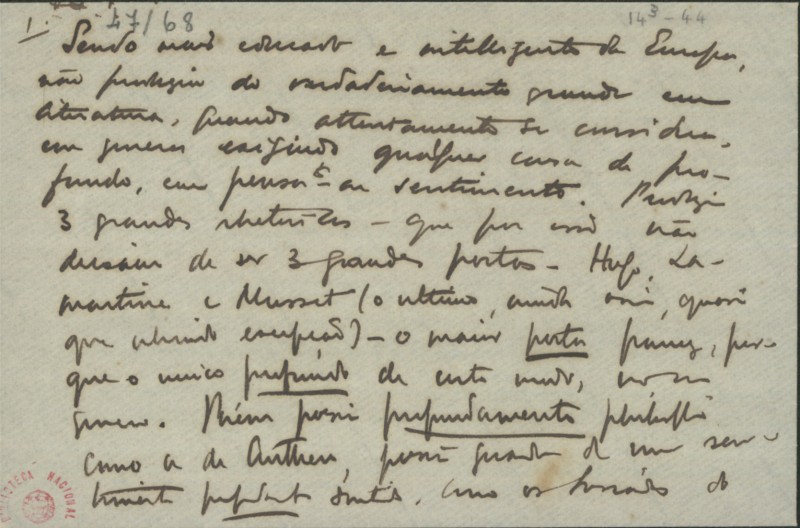 1.
47/68
14³-44
Sendo mais educado e intelligente da Europa,
não produziu de verdadeiramente grande em
literatura, quando attentamente se considera,
em genero exigindo qualquer cousa de pro-
fundo, em pensamto ou sentimento. Produziu
3 grandes rhetoricos - que por isso não
deixam de ser 3 grandes poetas - Hugo, La-
martine e Musset (o ultimo, ainda assi, quasi
que abrindo excepção) - o maior poeta francez, por-
que o unico profundo de certo modo, no seu
genero. Poesia profundamente philosophi
como a de Anthero, poesia grande de um sen-
timento profundamente sentido, como os Sonetos de
BIBLIOTECA NACIONAL